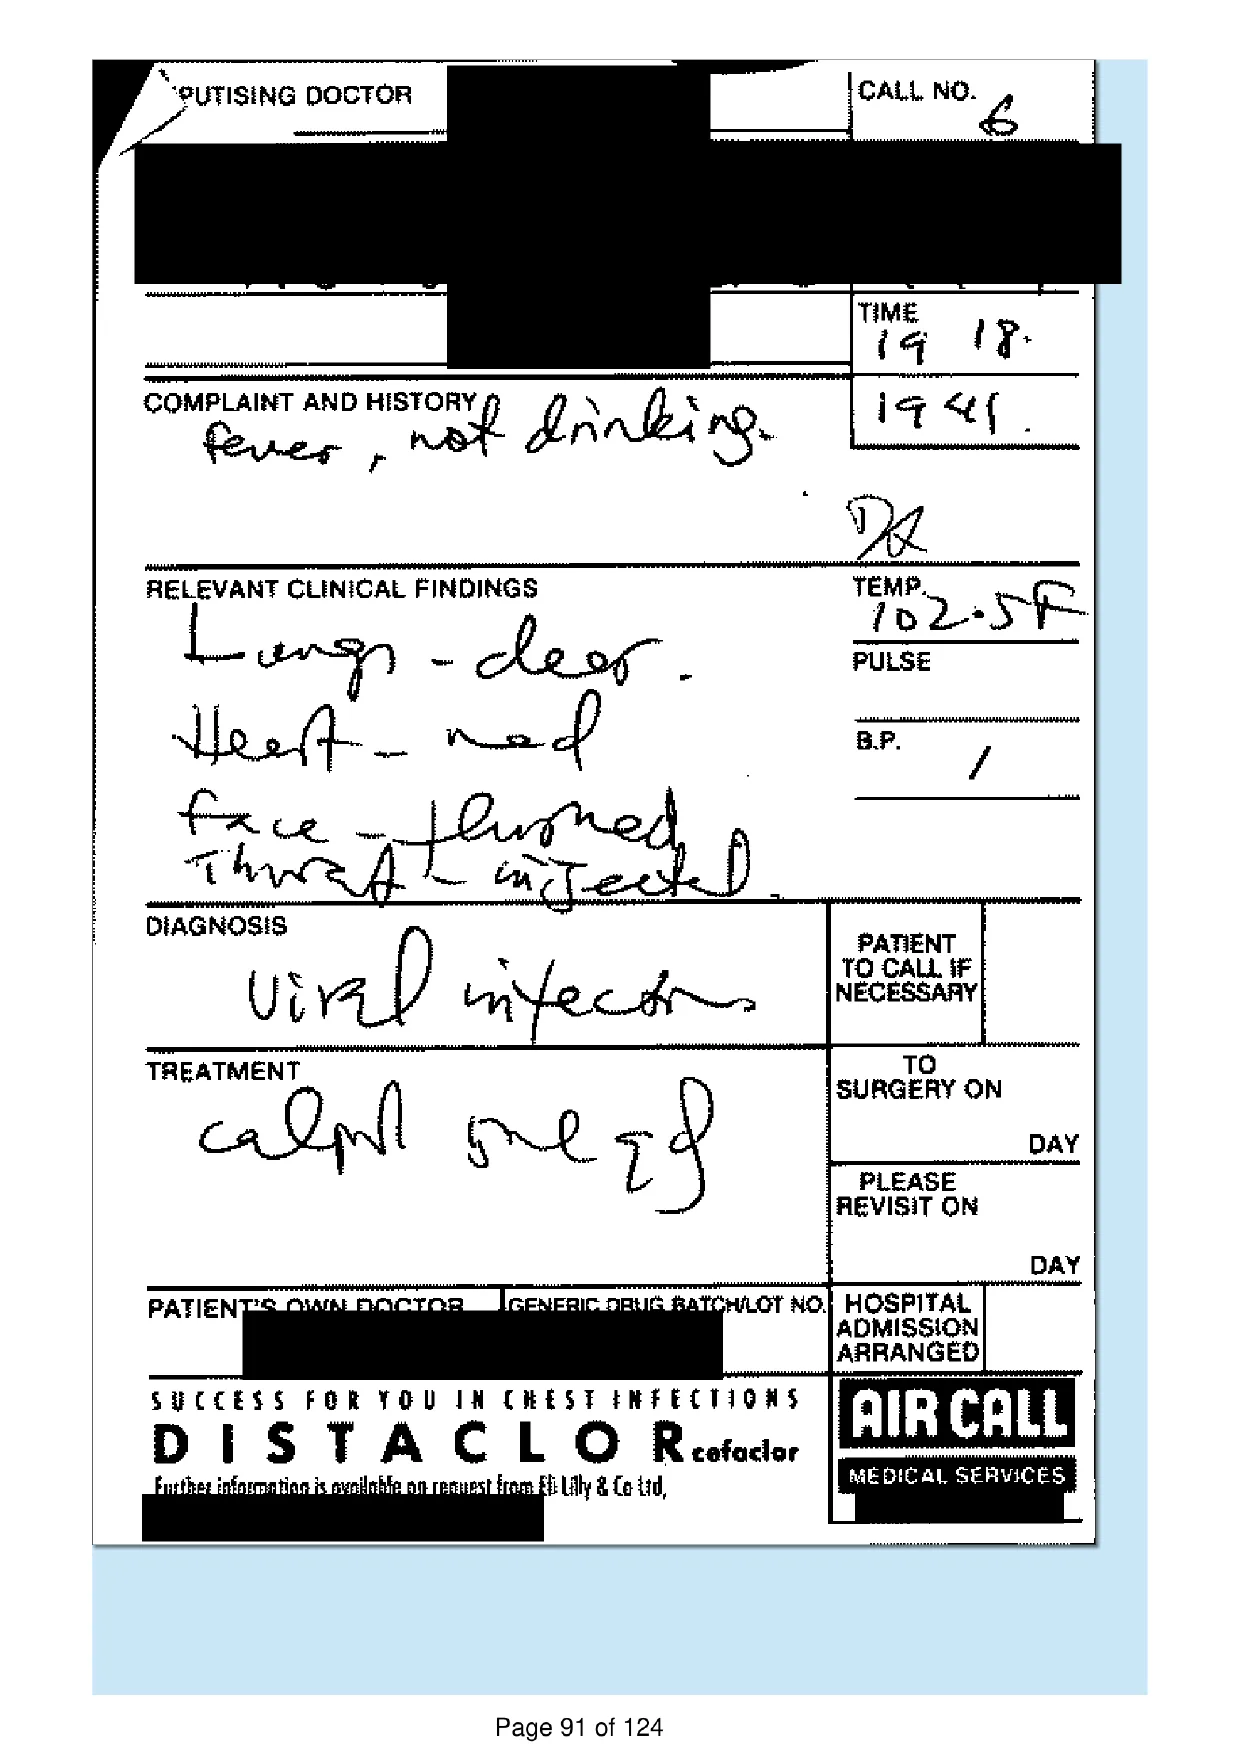 PUTISING DOCTOR
CALL NO.
6
TIME
19 18.
1941.
COMPLAINT AND HISTORY
fever, not drinking.
RELEVANT CLINICAL FINDINGS
TEMP.
102.5F
Lungs - clear.
PULSE
Heart - nad
B.P.
/
Face - flushed
Throat - injected.
DIAGNOSIS
Viral infection
PATIENT
TO CALL IF
NECESSARY
TREATMENT
calpol 5ml qd
TO
SURGERY ON
DAY
PLEASE
REVISIT ON
DAY
PATIENT'S OWN DOCTOR
GENERIC DRUG BATCH/LOT NO.
HOSPITAL
ADMISSION
ARRANGED
SUCCESS FOR YOU IN CHEST INFECTIONS
DISTACLOR cefaclor
Further information is available on request from Eli Lilly & Co Ltd,
AIR CALL
MEDICAL SERVICES
Page 91 of 124